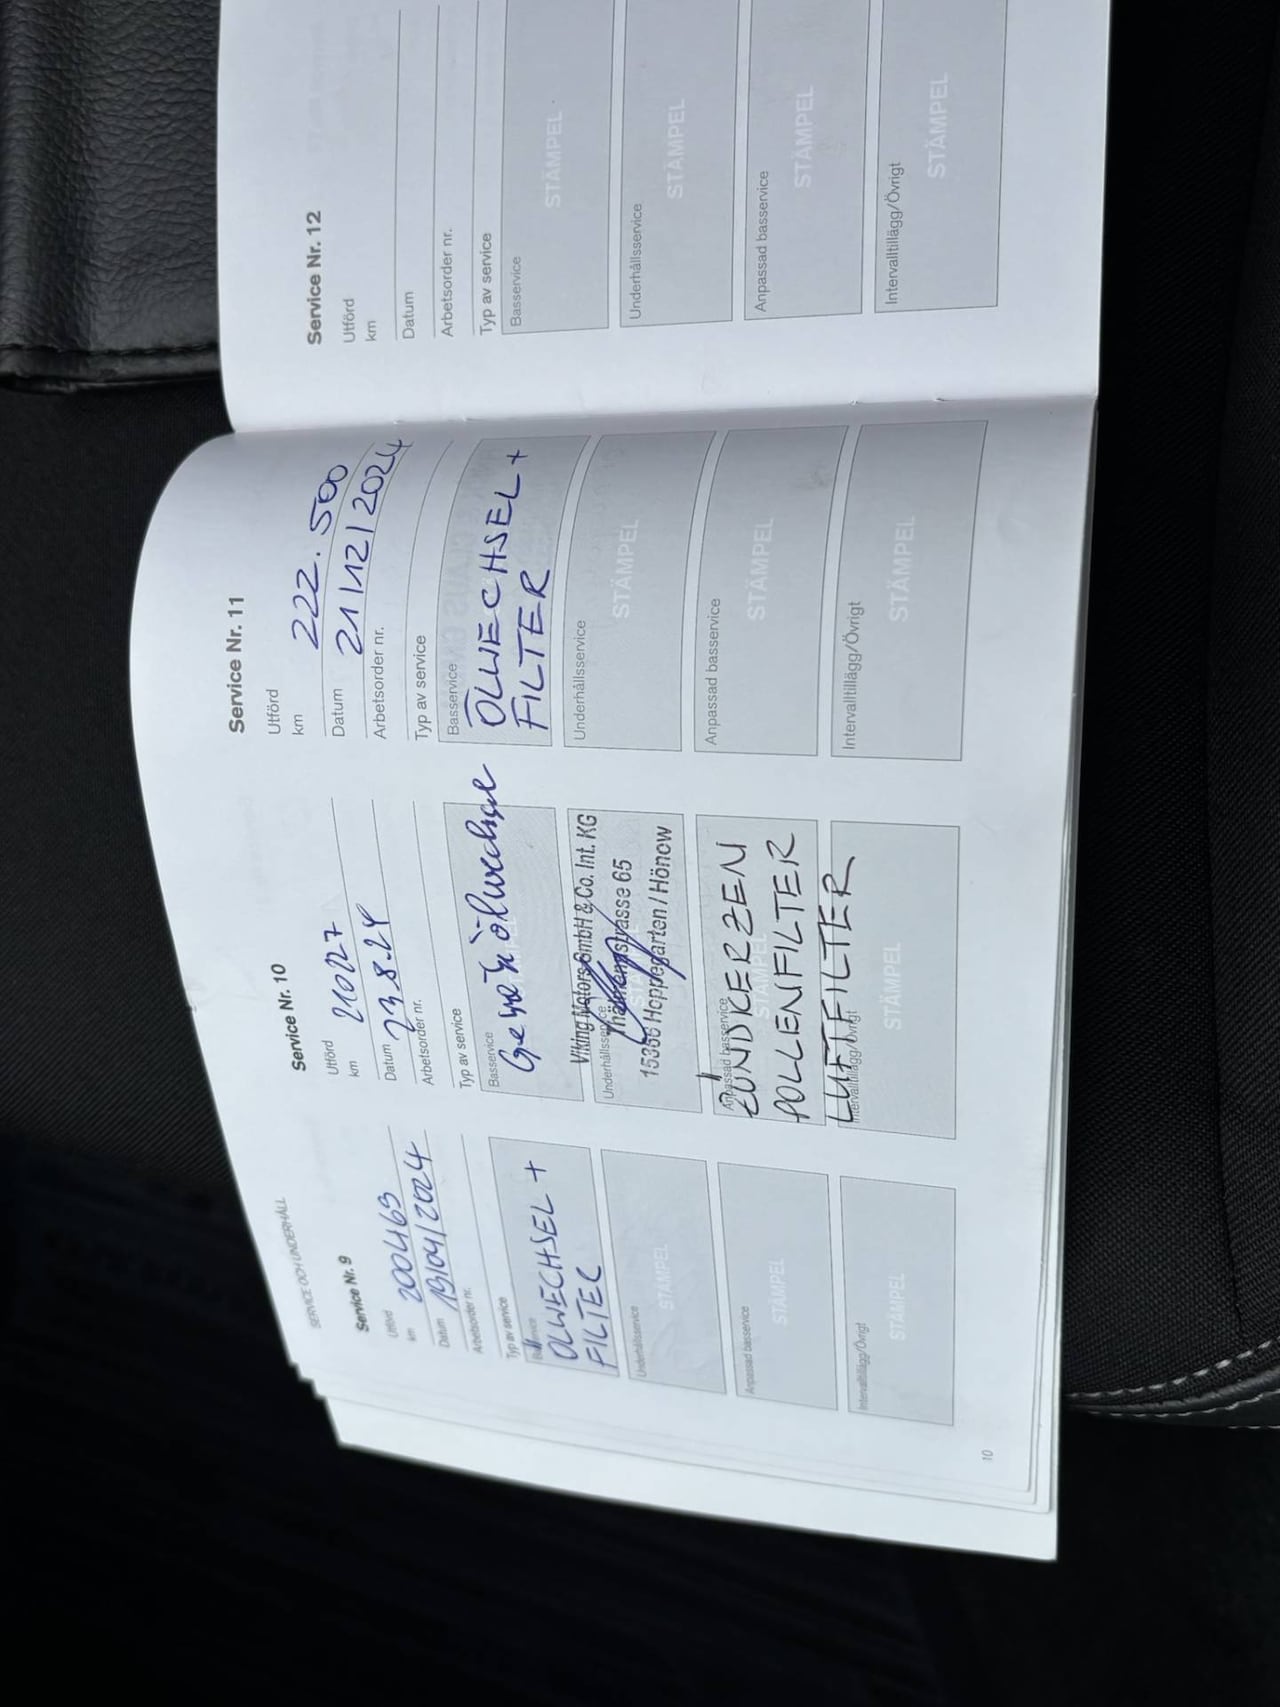 SERVICE OCH UNDERHÅLL
Service Nr. 9
Utförd
km 200469
Datum 19/04/2024
Arbetsorder nr.
Typ av service
ÖLWECHSEL +
FILTEC
Underhållsservice
STÄMPEL
Anpassad basservice
STÄMPEL
Intervalltillägg/Övrigt
STÄMPEL
10
Service Nr. 10
Utförd
km 210227
Datum 23.8.24
Arbetsorder nr.
Typ av service
Basservice
ölwechsel
Viking Motors GmbH & Co. Int. KG
Underhållsservice
15366 Hoppegarten / Hönow
Anpassad basservice
STÄMPEL
ZÜNDKERZEN
POLLENFILTER
LUFTFILTER
Intervalltillägg/Övrigt
STÄMPEL
Service Nr. 11
Utförd
km 222.500
Datum 21/12/2024
Arbetsorder nr.
Typ av service
Basservice
ÖLWECHSEL +
FILTER
Underhållsservice
STÄMPEL
Anpassad basservice
STÄMPEL
Intervalltillägg/Övrigt
STÄMPEL
Service Nr. 12
Utförd
km
Datum
Arbetsorder nr.
Typ av service
Basservice
STÄMPEL
Underhållsservice
STÄMPEL
Anpassad basservice
STÄMPEL
Intervalltillägg/Övrigt
STÄMPEL